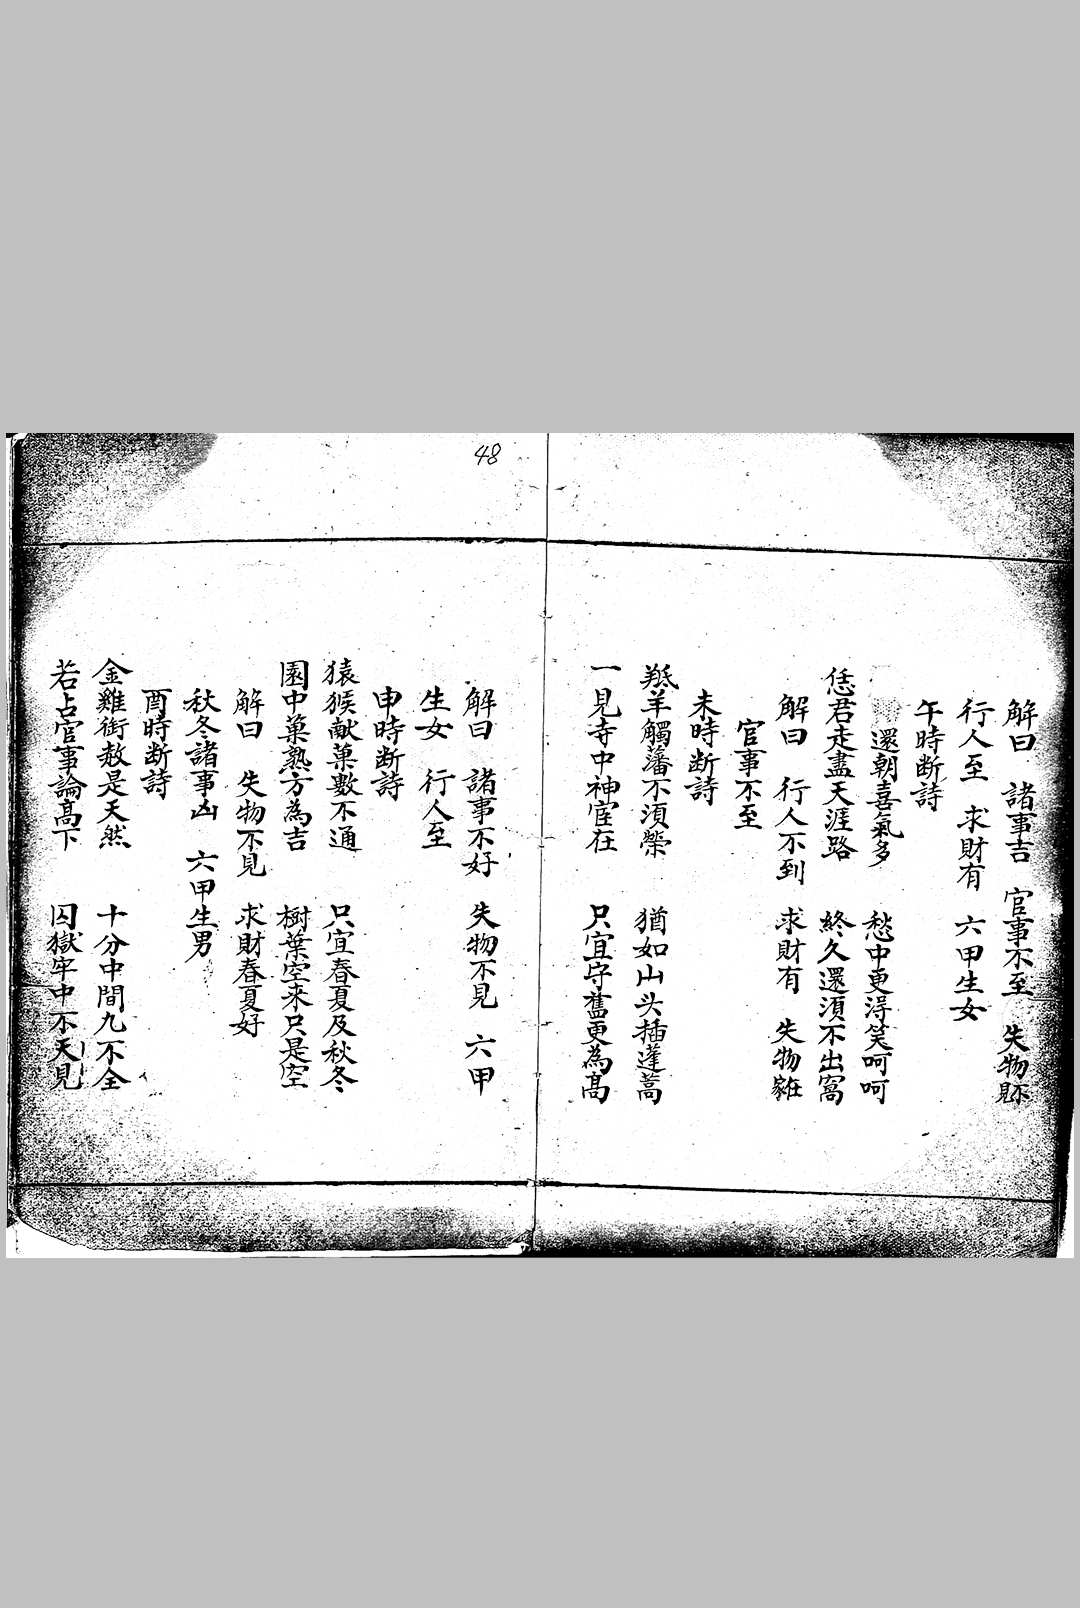 48
解曰　諸事吉　官事不至　失物不見
行人至　求財有　六甲生女
午時断詩
還朝喜氣多　愁中更淂笑呵呵
恁君走盡天涯路　終久還湏不出窩
解曰　行人不到　求財有　失物難
官事不至
未時断詩
羝羊觸藩不湏榮　猶如山头插蓬蒿
一見寺中神宦在　只宜守舊更為髙
解曰　諸事不好　失物不見　六甲
生女　行人至
申時断詩
猿猴献菓數不通　只宜春夏及秋冬
園中菓熟方為吉　樹葉空來只是空
解曰　失物不見　求財春夏好
秋冬諸事凶　六甲生男
酉時断詩
金雞街赦是天然　十分中間九不全
若占官事論髙下　囚獄牢中不天見